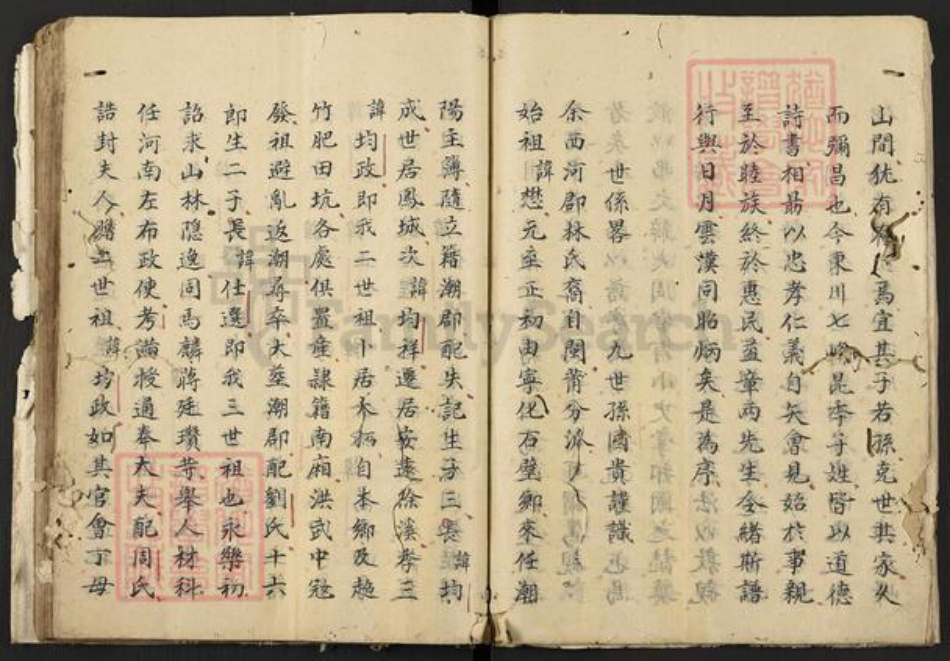 山間猶有
焉宜其子若孫克世其家久
而彌昌也今東川七
昆季子姓皆以道德
詩書相勗以忠孝仁義自矢會見始於事親
至於睦族終於惠民益章两先生令緒斯譜
行與日月雲漢同昭炳矣是為序
世係畧
九世孫國貴謹識
余西河郡林氏裔自閩莆分派
始祖諱懋元至正初由寧化石壁鄉來任潮
陽主簿隨立籍潮郡配失記生
三長諱均
成世居鳳城次諱均祥遷居
遠徐溪
三
諱均政即我二世祖卜居
自本鄉及
竹肥田坑各處俱置産隷籍南廂洪武中寇
發祖避亂返潮尋卒
潮郡配劉氏十六
郎生二子長諱仕選即我三世祖也永樂初
詔求山林隱逸同馬麟蔣廷瓚等舉人材科
任河南左布政使考滿授通奉大夫配周氏
誥封夫人贈二世祖諱均政如其官會丁母
FamilySearch